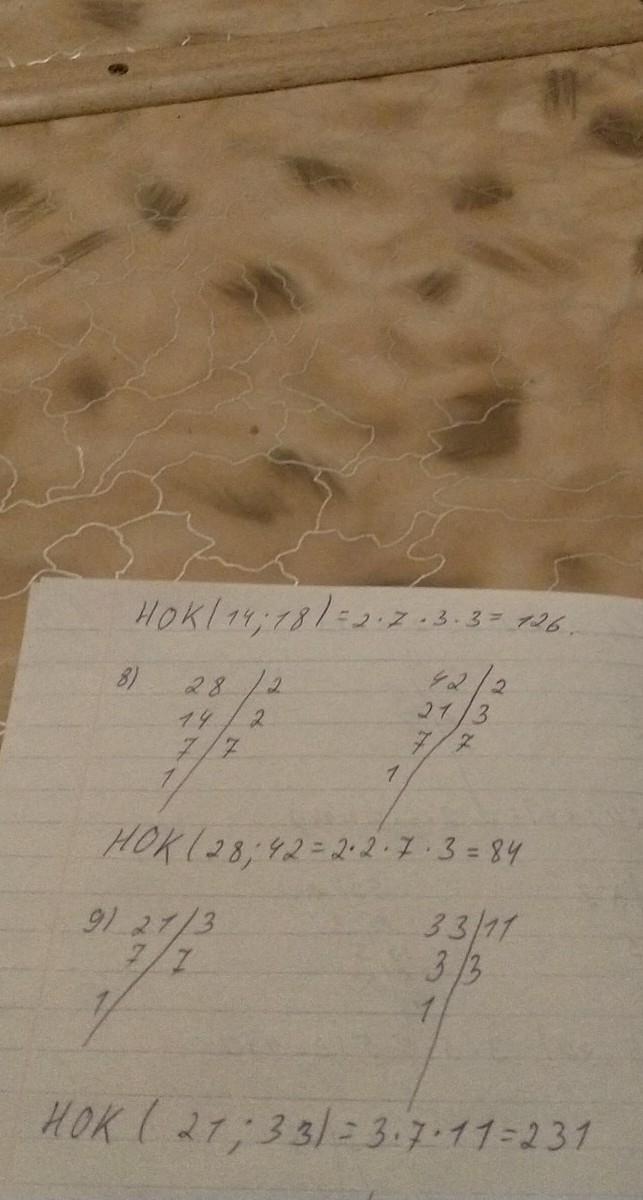 НОК(14;18)=2·7·3·3=126.
8) 28/2 42/2
14/2 21/3
7/7 7/7
1/ 1/
НОК(28;42=2·2·7·3=84
9) 21/3 33/11
7/7 3/3
1/ 1/
НОК(21;33)=3·7·11=231